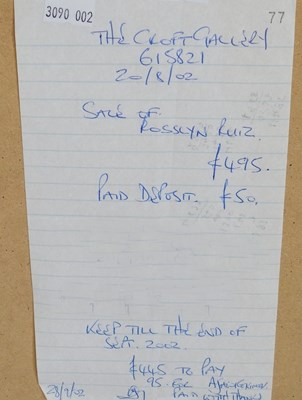 3090 002
77
THE CROFT GALLERY
615821
20/8/02
SALE OF
ROSSLYN RUIZ.
£495.
PAID DEPOSIT. £50.
KEEP TILL THE END OF
SEPT. 2002.
£445 TO PAY
95.
28/9/02 PAID